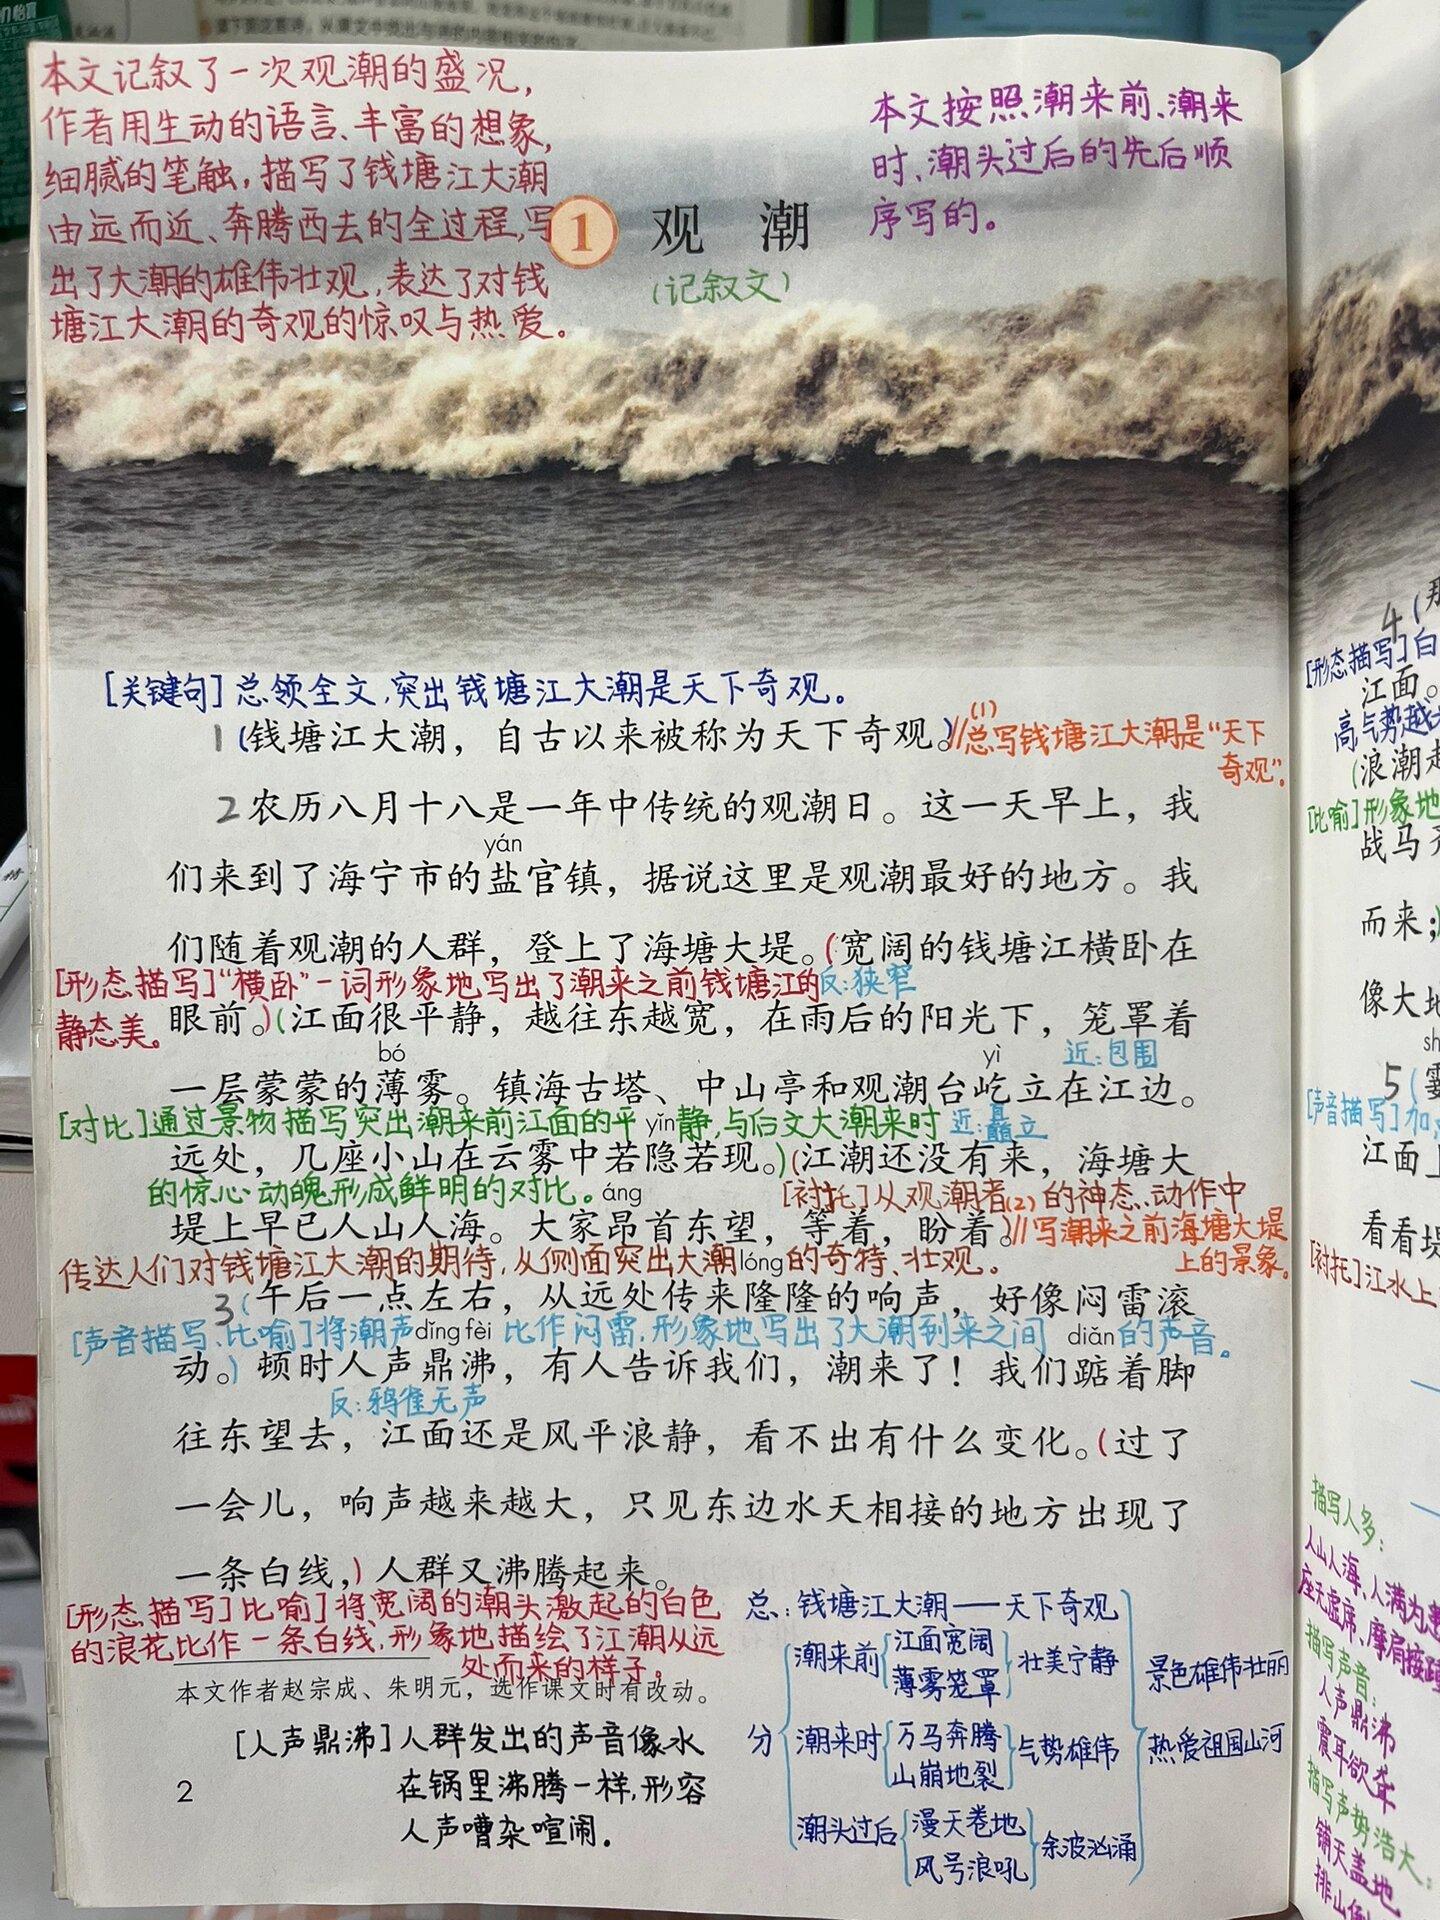 本文记叙了一次观潮的盛况,
作者用生动的语言、丰富的想象,
细腻的笔触,描写了钱塘江大潮
由远而近、奔腾西去的全过程,写
出了大潮的雄伟壮观,表达了对钱
塘江大潮的奇观的惊叹与热爱。
本文按照潮来前、潮来
时、潮头过后的先后顺
序写的。
1 观潮
(记叙文)
[关键句]总领全文,突出钱塘江大潮是天下奇观。
1(钱塘江大潮，自古以来被称为天下奇观。)//(1)总写钱塘江大潮是“天下
奇观”。
2农历八月十八是一年中传统的观潮日。这一天早上，我
yán
们来到了海宁市的盐官镇，据说这里是观潮最好的地方。我
们随着观潮的人群，登上了海塘大堤。(宽阔的钱塘江横卧在
[形态描写]“横卧”一词形象地写出了潮来之前钱塘江的
静态美。
反:狭窄
眼前。)(江面很平静，越往东越宽，在雨后的阳光下，笼罩着
bó yì
近:包围
一层蒙蒙的薄雾。镇海古塔、中山亭和观潮台屹立在江边。
[对比]通过景物描写突出潮来前江面的平静,与后文大潮来时
yǐn
近:矗立
远处，几座小山在云雾中若隐若现。)(江潮还没有来，海塘大
的惊心动魄形成鲜明的对比。
áng
[衬托]从观潮者的神态、动作中
堤上早已人山人海。大家昂首东望，等着，盼着。)//(2)写潮来之前海塘大堤
上的景象。
传达人们对钱塘江大潮的期待,从侧面突出大潮的奇特、壮观。
lóng
3(午后一点左右，从远处传来隆隆的响声，好像闷雷滚
[声音描写、比喻]将潮声比作闷雷,形象地写出了大潮到来之间的声音。
dǐng fèi diǎn
动。)顿时人声鼎沸，有人告诉我们，潮来了！我们踮着脚
反:鸦雀无声
往东望去，江面还是风平浪静，看不出有什么变化。(过了
一会儿，响声越来越大，只见东边水天相接的地方出现了
一条白线，)人群又沸腾起来。
[形态描写]比喻]将宽阔的潮头激起的白色
的浪花比作一条白线,形象地描绘了江潮从远
处而来的样子。
本文作者赵宗成、朱明元，选作课文时有改动。
[人声鼎沸]人群发出的声音像水
在锅里沸腾一样,形容
人声嘈杂喧闹.
2
总:钱塘江大潮——天下奇观
分
潮来前 江面宽阔 薄雾笼罩 壮美宁静
潮来时 万马奔腾 山崩地裂 气势雄伟
潮头过后 漫天卷地 风号浪吼 余波汹涌
景色雄伟壮丽
热爱祖国山河
4(那
[形态描写]白
江面。
高气势越
(浪潮越
[比喻]形象地
战马齐
而来;
像大地
5(霎
[声音描写]加
江面上
看看堤
[衬托]江水上
描写人多:
人山人海、人满为患
座无虚席、摩肩接踵
描写声音:
人声鼎沸
震耳欲聋
描写声势浩大:
铺天盖地
排山倒